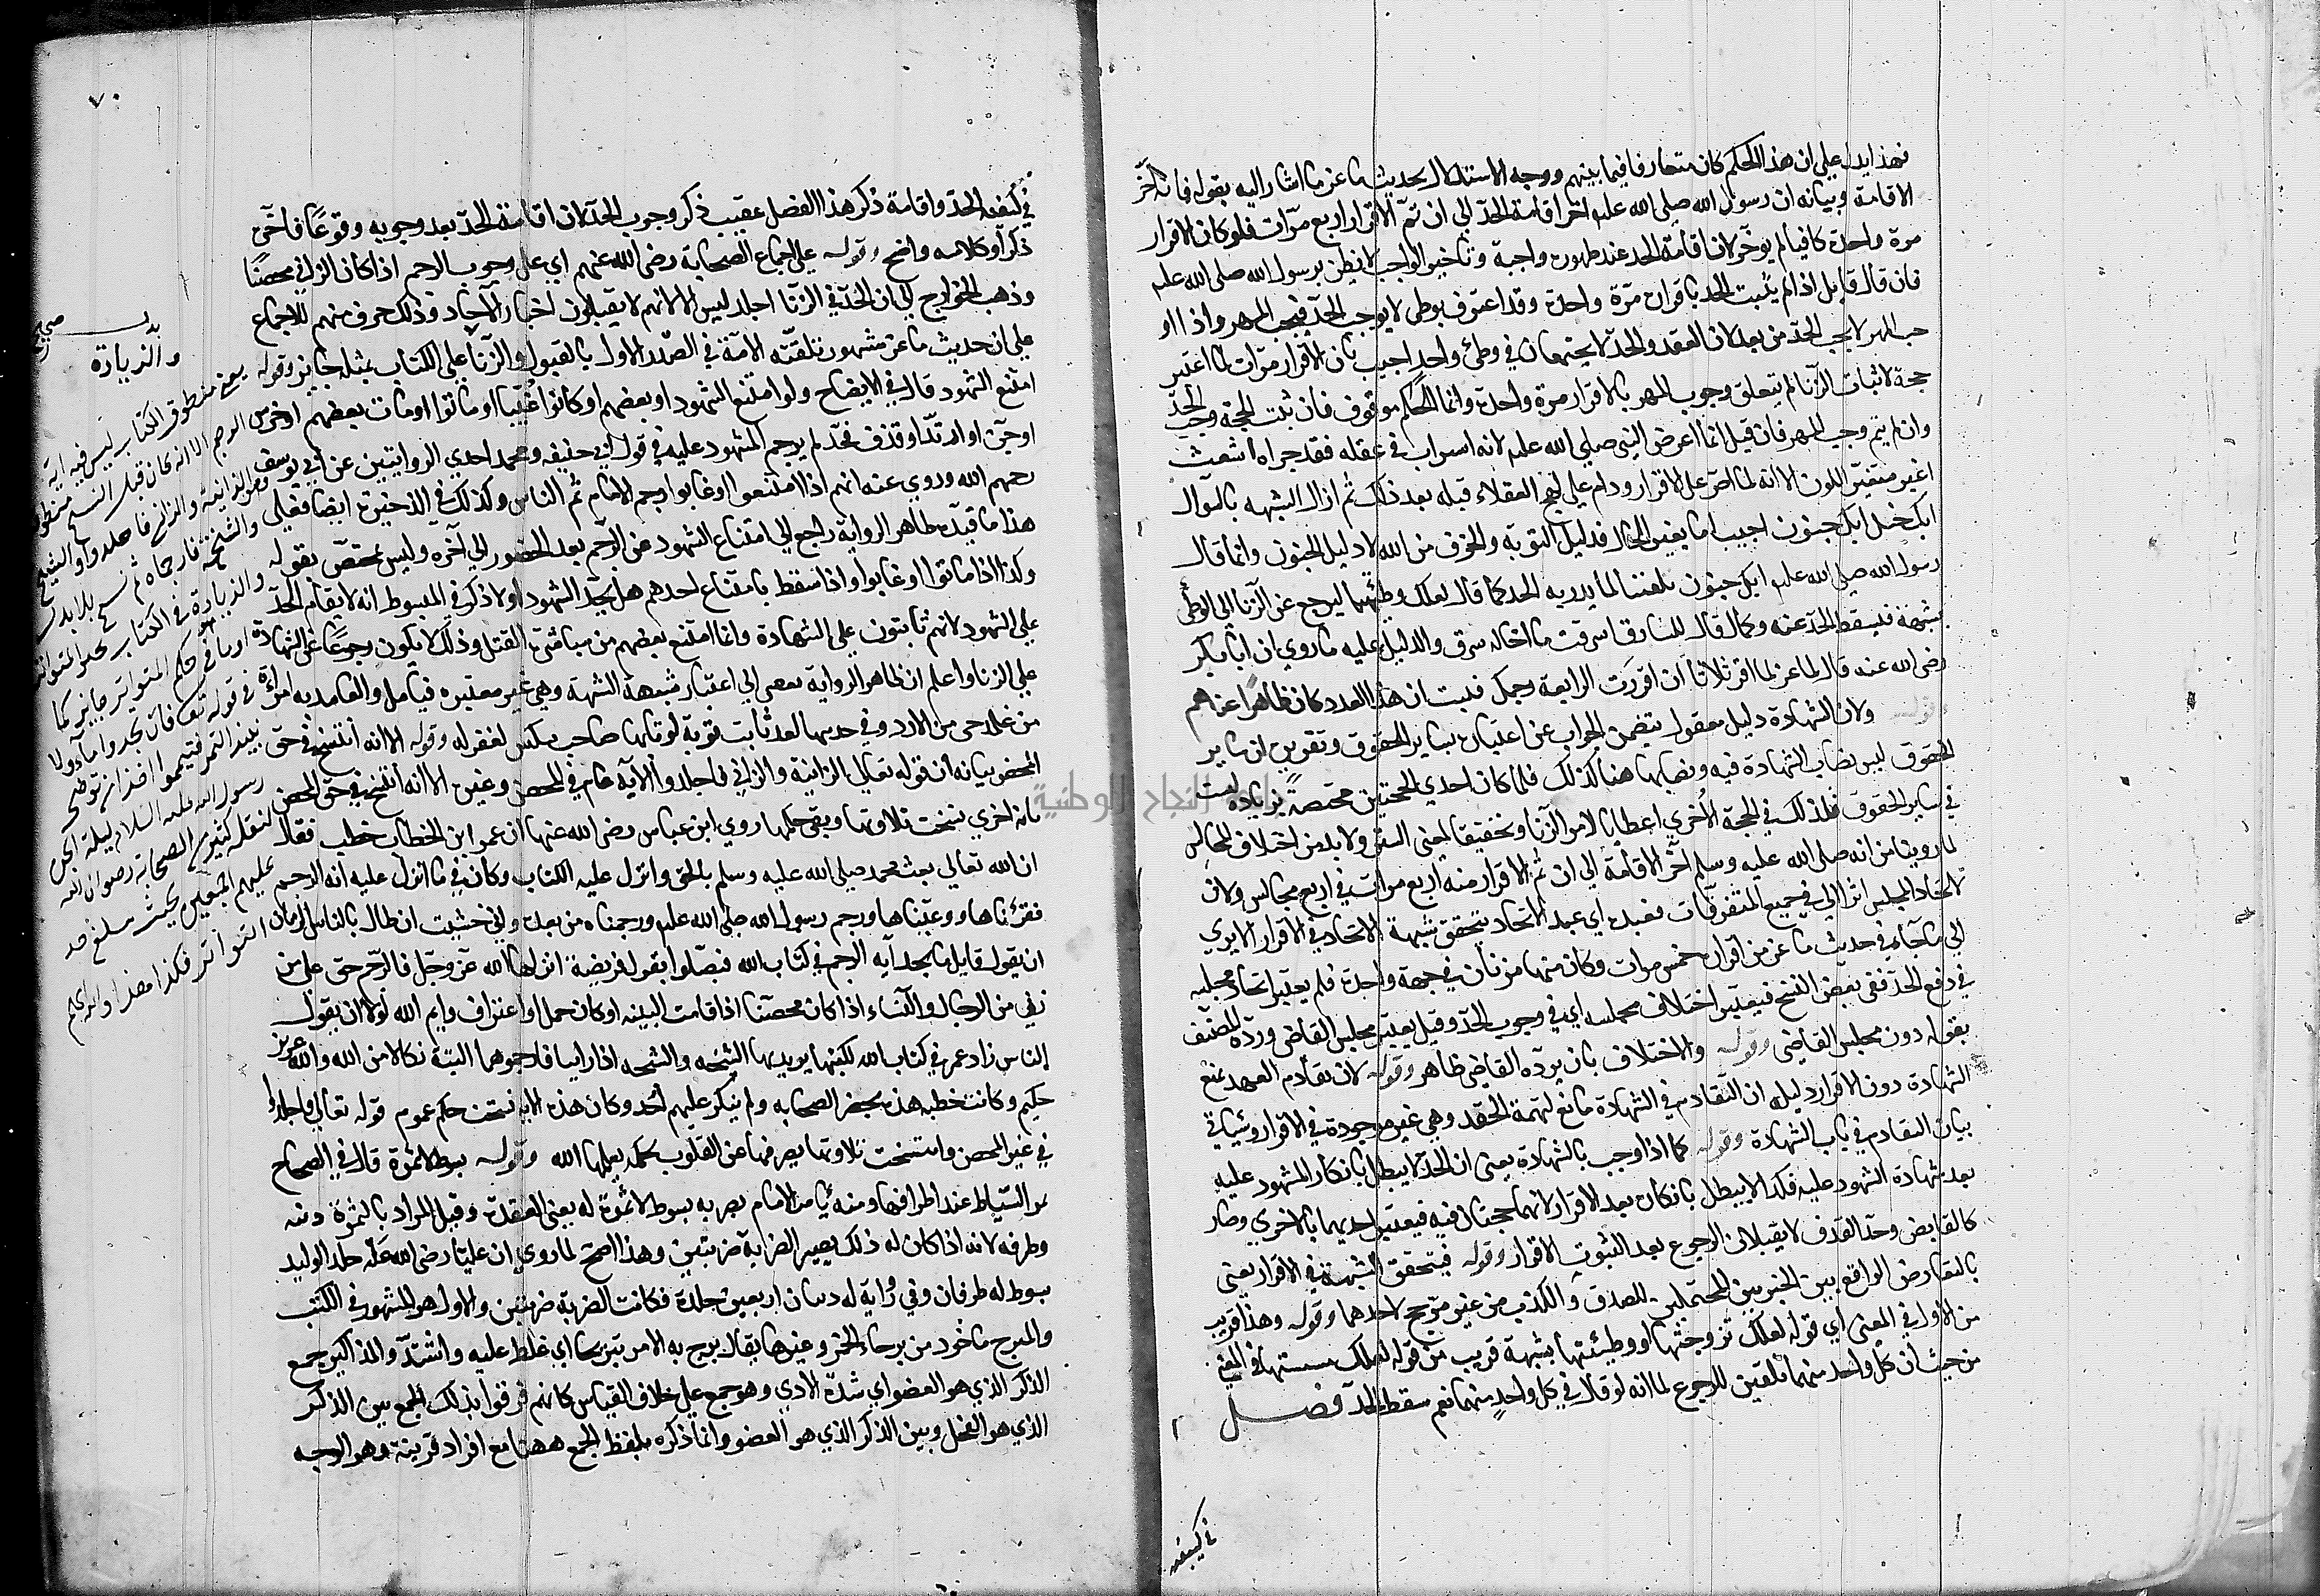 فهذا يدل علي ان هذا الحكم كان متعارفا فيما بينهم ووجه الاستدلال بحديث ماعز ما اشار اليه بقوله فانه اخر
الاقامة وبيانه ان رسول الله صلى الله عليه اخر اقامة الحد الي ان تم الاقرار اربع مرات فلو كان الاقرار
مرة واحدة كافيا لم يوخر لان اقامة الحد عند ظهوره واجبة وتاخير الواجب لا يظن برسول الله صلى الله عليه
فان قال قايل اذا لم يثبت الحد باقراره مرة واحدة وقد اعترف بوطئ لا يوجب الحد فيجب المهر واذا او
جب المهر لا يجب الحد من بعد لان العقد والحد لا يجتمعان في وطئ واحد اجيب بان الاقرار مرات لما اعتبر
حجة لاثبات الزنا لم يتعلق وجوب المهر بالاقرار مرة واحدة وانما الحكم موقوف فان ثبت الحجة وجب الحد
وان لم يتم وجب المهر فان قيل انما اعرض النبي صلي الله عليه لانه استراب في عقله فقد جراه اشعث
اغبر متغير اللون الا انه لما اصر على الاقرار ودام علي نهج العقلاء قبله بعد ذلك ثم ازال الشبهه بالسوال
ابك خبل ابك جنون اجيب اما بغير الحال فدليل التوبة والخوف من الله لا دليل الجنون وانما قال
رسول الله صلى الله عليه ابك جنون تلقينا لما يدرء به الحد كما قال لعلك وطئتها ليرجع عن الزنا الي الوطئ
بشبهة فيسقط الحد عنه وكما قال للسارق اسرقت ما اخاله سرق والدليل عليه ما روي ان ابا بكر
رضى الله عنه قال لماعز لما اقر ثلاثا ان اقررت الرابعة رجمك فثبت ان هذا العدد كان ظاهرا عندهم
وقوله ولان الشهادة دليل معقول يتضمن الجواب عن اعتباره بساير الحقوق وتقريره ان ساير
الحقوق ليس نصاب الشهادة فيه ونصابها هنا كذلك فلما كان احدي الحجتين مختصة بزيادة ليست
في ساير الحقوق فكذلك في الحجة الاخري اعظاما لامر الزنا وتحقيقا لمعنى الستر ولا بد من اختلاف المجالس
لما روينا من انه صلى الله عليه وسلم اخر الاقامة الي ان تم الاقرار منه اربع مرات في اربع مجالس ولان
لاتحاد المجلس اثرا في جميع المتفرقات فعنده اي عند الاتحاد تتحقق شبهة الاتحاد في الاقرار الا يري
الي ما جاء في حديث ماعز من اقراره خمس مرات وكان منها مرتان في جهة واحدة فلم يعتبر اتحاد مجلسه
في دفع الحد ففى بعض النسخ فيعتبر اختلاف مجلسه اي في وجوب الحد وقيل يعتبر مجلس القاضي ورده المصنف
بقوله دون مجلس القاضي وقوله والاختلاف بان يرده القاضي ظاهر وقوله لان تقادم العهد يمنع
الشهادة دون الاقرار دليله ان التقادم في الشهادة مانع لتهمة الحقد وهي غير موجودة في الاقرار وسياتي
بيان التقادم في باب الشهادة وقوله كما اذا وجب بالشهادة يعنى ان الحد لا يبطل بانكار المشهود عليه
بعد شهادة الشهود عليه فكذا لا يبطل بانكاره بعد الاقرار لانهما حجتان فيه فيعتبر احديهما بالاخري وصار
كالقابض وحد القذف لا يقبلان الرجوع بعد الثبوت الاقرار وقوله فيتحقق الشبهة في الاقرار يعني
بالتعارض الواقع بين الخبرين المحتملين للصدق والكذب من غير مرجح لاحدهما وقوله وهذا قريب
من الاول في المعنى اي قوله لعلك تزوجتها او وطئتها بشبهة قريب من قوله لعلك مسستها في المعني
من حيث ان كل واحد منهما تلقين للرجوع لما انه لو قال في كل واحد منهما نعم سقط الحد فصل
في كيفيه
٧٠
في كيفية الحد واقامة ذكر هذا الفصل عقيب ذكر وجوب الحد لان اقامة الحد بعد وجوبه وقوعا فاخرى
ذكرا وكلامه واضح وقوله على اجماع الصحابة رضى الله عنهم اي على وجوب الرجم اذا كان الزاني محصنا
وذهب الخوارج الي ان الحد في الزنا الجلد ليس الا لانهم لا يقبلون اخبار الآحاد وذلك خرق منهم للاجماع
علي ان حديث ماعز مشهور تلقته الامة في الصدر الاول بالقبول والزيادة علي الكتاب بمثله جايز وقوله
امتنع الشهود قال في الايضاح ولو امتنع الشهود او بعضهم او كانوا غيبا او ماتوا او مات بعضهم او خرس
او جن او ارتد او قذف فحد لم يرجم المشهود عليه في قول ابي حنيفه ومحمد احدي الروايتين عن ابي يوسف
رحمهم الله وروي عنه انهم اذا امتنعوا او غابوا رجم الامام ثم الناس وكذلك في الذخيرة ايضا فعلي
هذا ما قيد ظاهر الرواية راجع الي امتناع الشهود عن الرجم بعد الحضور الي اخره وليس بمختص بقوله
وكذا اذا ماتوا او غابوا واذا سقط بامتناع احدهم هل يحد الشهود او لا ذكر في المبسوط انه لا يقام الحد
على الشهود لانهم ثابتون علي الشهادة وانما امتنع بعضهم من مباشرة القتل وذلك لا يكون رجوعا عن الشهادة
علي الزنا واعلم ان ظاهر الرواية الي اعتبار شبهة الشبهة وهي غير معتبره فيامل والغامديه امراة
من غامد حى من الازد وفي حديثها لقد تابت توبة لو تابها صاحب مكس لغفر له وقوله الا انه انتسخ في حق
المحصن بيانه ان قوله تعالي الزانية والزاني فاجلدوا الآية عام في المحصن وغيره الا انه انتسخ في حق المحصن
باية اخري نسخت تلاوتها وبقي حكمها روي ابن عباس رضى الله عنهما ان عمر ابن الخطاب خطب فقال
ان الله تعالي بعث محمد صلي الله عليه وسلم بالحق وانزل عليه الكتاب وكان في ما انزل عليه اية الرجم
فقرءناها ووعيناها ورجم رسول الله صلى الله عليه ورجمناه من بعده واني خشيت ان طال بالناس الزمان
ان يقول قايل ما نجد آية الرجم في كتاب الله فيضلوا بقوله فريضة انزلها الله عز وجل فالرجم حق على من
زنى من الرجال والنساء اذا كان محصنا اذا قامت البينه او كان حمل او اعتراف وايم الله لولا ان يقول
الناس زاد عمر في كتاب الله لكتبتها يريد بها الشيخه والشيخه اذا زنيا فارجموهما البتة نكالا من الله والله عزيز
حكيم وكانت خطبه هذه بمحضر الصحابه ولم ينكر عليهم احد وكان هذه الايه نسخت حكم عموم قوله تعالي فاجلدوا
في غير المحصن وانتسخت تلاوتها بصرفها عن القلوب لحكمة يعلمها الله وقوله بسوط لا ثمرة قال في الصحاح
ثمر السياط عند اطرافها ومنه يامر الامام بضربه بسوط لا ثمرة له يعنى العقدة وقيل المراد بالثمرة ذنبه
وطرفه لانه اذا كان له ذلك يصير الضربة ضربتين وهذا اصح لما روي ان عليا رضى الله عنه جلد الوليد
بسوط له طرفان وفي رواية له ذنبان اربعين جلدة فكانت الضربة ضربتين والاول هو المشهور في الكتب
والمبرح ماخوذ من برحاء الحمى وغيرها يقال برح به الامر تبريحا اي غلظ عليه واشتد والمذاكير جمع
الذكر الذي هو العضو اي شدة الاذي وهو جمع علي خلاف القياس كانهم فرقوا بذلك الجمع بين الذكر
الذي هو الفحل وبين الذكر الذي هو العضو وانما ذكره بلفظ الجمع ههنا مع افراد قرينه وهو الوجه
والزيادة
يعنى منطوق الكتاب ليس فيه اية
الرجم الا انه كان قبل النسخ منطوق
والزانية والزاني فاجلدوا او الشيخ
والشيخة فارجماه ثم نسخ بلا بدل
والزيادة في الكتاب بخبر المتواتر
او ما في حكم المتواتر جايز كما
في قوله تعالى فان لم تجدوا ماء ولا
نبيذ التمر فتيمموا اخذا من توضى
رسول الله عليه السلام ليلة الجن
لنقله كثير من الصحابة رضوان الله
عليهم اجمعين بحيث سلغ حد
التواتر فكذا هذا والله اعلم
جامعة النجاح الوطنية